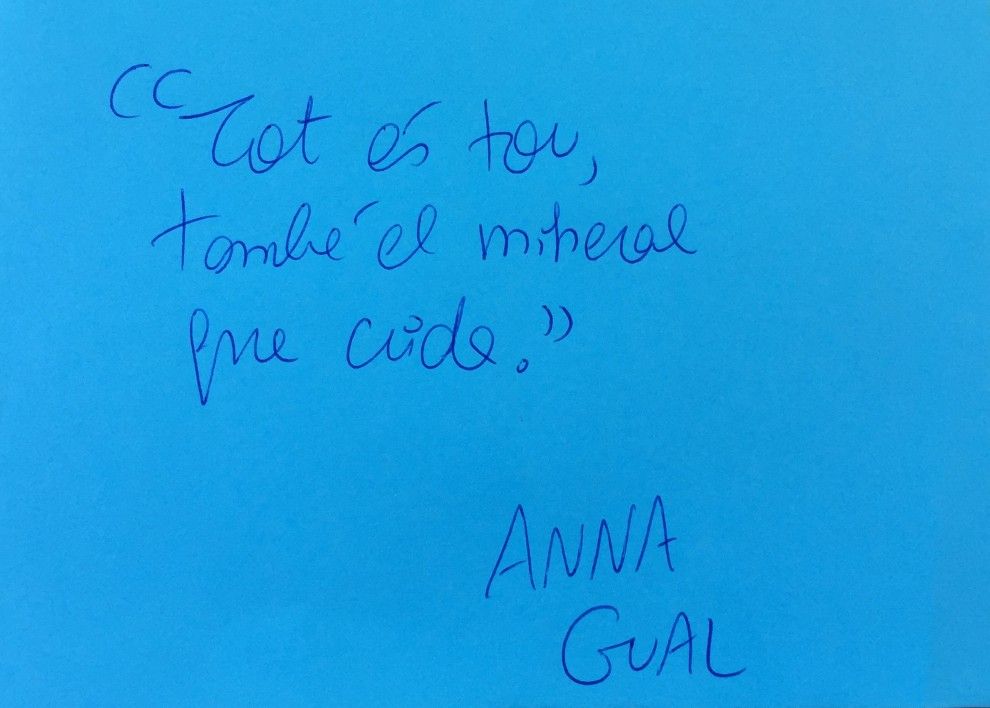 “Tot és tou,
també el mineral
que crida.”
ANNA
GUAL